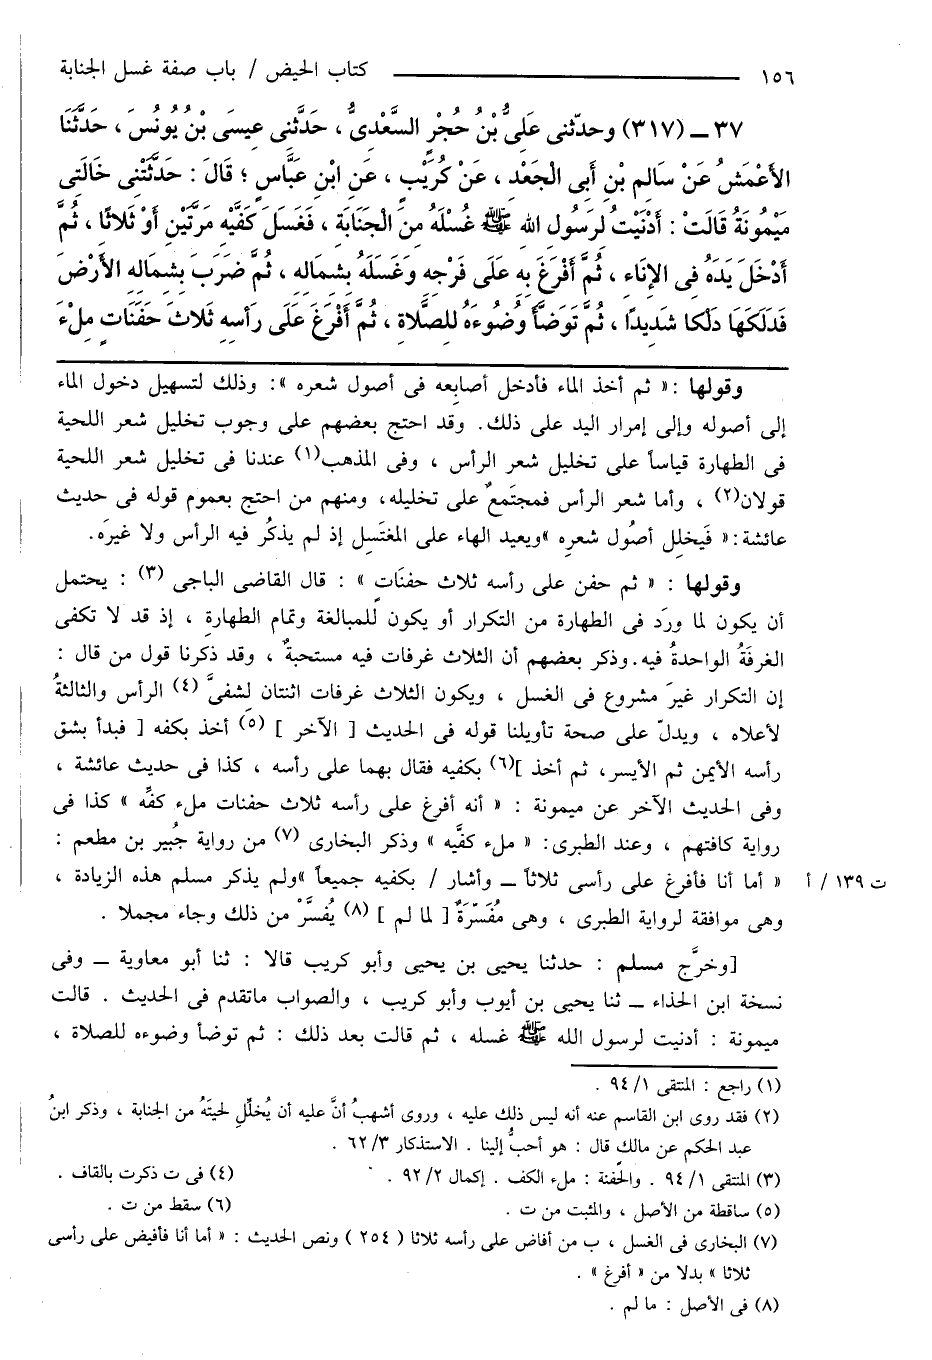 ١٥٦ ــــــــ كتاب الحيض / باب صفة غسل الجنابة
٣٧ ـ (٣١٧) وحدّثنى عَلىُّ بْنُ حُجْرٍ السَّعْدِىُّ ، حَدَّثَنِى عِيسَى بْنُ يُونُسَ ، حَدَّثَنَا
الأَعْمَشُ عَنْ سَالِمِ بْنِ أَبِى الْجَعْدِ ، عَنْ كُرَيْبٍ ، عَنِ ابْنِ عَبَّاسٍ ؛ قَالَ : حَدَّثَتْنِى خَالَتِى
مَيْمُونَةُ قَالَتْ : أَدْنَيْتُ لِرَسُولِ اللهِ ﷺ غُسْلَهُ مِنَ الْجَنَابَةِ ، فَغَسَلَ كَفَّيْهِ مَرَّتَيْنِ أَوْ ثَلاثًا ، ثُمَّ
أَدْخَلَ يَدَهُ فِى الإِنَاءِ ، ثُمَّ أَفْرَغَ بِهِ عَلَى فَرْجِهِ وَغَسَلَهُ بِشِمَالِهِ ، ثُمَّ ضَرَبَ بِشِمَالِهِ الأَرْضَ
فَدَلَكَهَا دَلْكًا شَدِيدًا ، ثُمَّ تَوَضَّأَ وُضُوءَهُ لِلصَّلاةِ ، ثُمَّ أَفْرَغَ عَلَى رَأْسِهِ ثَلاثَ حَفَنَاتٍ مِلْءَ
وقولها : « ثم أخذ الماء فأدخل أصابعه فى أصول شعره »: وذلك لتسهيل دخول الماء
إلى أصوله وإلى إمرار اليد على ذلك. وقد احتج بعضهم على وجوب تخليل شعر اللحية
فى الطهارة قياساً على تخليل شعر الرأس ، وفى المذهب(١) عندنا فى تخليل شعر اللحية
قولان(٢) ، وأما شعر الرأس فمجتمَعٌ على تخليله، ومنهم من احتج بعموم قوله فى حديث
عائشة:« فَيخلل أصُول شعرِه »ويعيد الهاء على المغتَسِل إذ لم يذكُر فيه الرأس ولا غيرَه.
وقولها : « ثم حفن على رأسه ثلاث حفنَات » : قال القاضى الباجى (٣) : يحتمل
أن يكون لما ورَد فى الطهارة من التكرار أو يكون للمبالغة وتمام الطهارةِ ، إذ قد لا تكفى
الغرفَةُ الواحدةُ فيه.وذكر بعضهم أن الثلاث غرفات فيه مستحبةٌ ، وقد ذكرنا قول من قال :
إن التكرار غيرَ مشروع فى الغسل ، ويكون الثلاث غرفات اثنتان لِشقىَّ (٤) الرأس والثالثةُ
لأعلاه ، ويدلّ على صحة تأويلنا قوله فى الحديث [ الآخر ] (٥) أخذ بكفه [ فبدأ بشق
رأسه الأيمن ثم الأيسر، ثم أخذ ](٦) بكفيه فقال بهما على رأسه ، كذا فى حديث عائشة ،
وفى الحديث الآخر عن ميمونة : « أنه أفرغ على رأسه ثلاث حفنات ملء كفِّه » كذا فى
رواية كافتهم ، وعند الطبرى: « ملء كفَّيه » وذكر البخارى (٧) من رواية جُبير بن مطعم :
« أما أنا فأفرغ على رأسى ثلاثاً ــ وأشار / بكفيه جميعاً »ولم يذكر مسلم هذه الزيادة ،
ت ١٣٩ / أ
وهى موافقة لرواية الطبرى ، وهى مفُسّرَةٌ [ لما لم ] (٨) يُفسَّرْ من ذلك وجاء مجملا .
[وخرَّج مسلم : حدثنا يحيى بن يحيى وأبو كريب قالا : ثنا أبو معاوية ــ وفى
نسخة ابن الحذاء ــ ثنا يحيى بن أيوب وأبو كريب ، والصواب ماتقدم فى الحديث . قالت
ميمونة : أدنيت لرسول الله ﷺ غسله ، ثم قالت بعد ذلك : ثم توضأ وضوءه للصلاة ،
(١) راجع : المنتقى ١/ ٩٤ .
(٢) فقد روى ابن القاسم عنه أنه ليس ذلك عليه ، وروى أشهبُ أنَّ عليه أن يُخلِّل لحيتَهُ من الجنابة ، وذكر ابنُ
عبد الحكم عن مالك قال : هو أحبُّ إلينا . الاستذكار ٣/ ٦٢ .
(٣) المنتقى ١/ ٩٤ . والحَفنة : ملء الكف . إكمال ٢/ ٩٢ .
(٤) فى ت ذكرت بالقاف .
(٥) ساقطة من الأصل ، والمثبت من ت .
(٦) سقط من ت .
(٧) البخارى فى الغسل ، ب من أفاض على رأسه ثلاثا ( ٢٥٤ ) ونص الحديث : « أما أنا فأفيض على رأسى
ثلاثا » بدلا من « أفرغ » .
(٨) فى الأصل : ما لم .